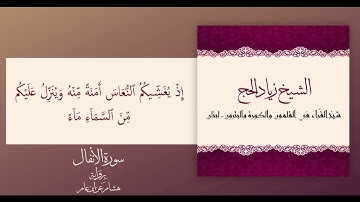 إِذۡ يُغَشِّيكُمُ ٱلنُّعَاسَ أَمَنَةٗ مِّنۡهُ وَيُنَزِّلُ عَلَيۡكُم
مِّنَ ٱلسَّمَآءِ مَآءٗ
سورة الأنفال
برواية
هشام عن ابن عامر
الشيخ زياد الحج
شيخ القراء في القلمون والكورة والبترون - لبنان